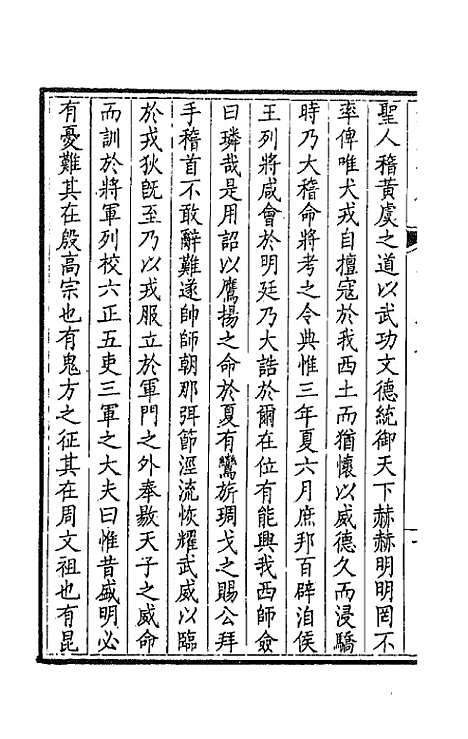 聖人稽黃虞之道以武功文德統御天下赫赫明明罔不
率俾唯犬戎自擅寇於我西土而猶懷以威德久而浸驕
時乃大稽命將考之令典惟三年夏六月庶邦百辟洎侯
王列將咸會於明廷乃大誥於爾在位有能興我西師僉
曰璘哉是用詔以鷹揚之命於夏有鸞旂琱戈之賜公拜
手稽首不敢辭難遂帥師朝那弭節涇流恢耀武威以臨
於戎狄旣至乃以戎服立於軍門之外奉敭天子之威命
而訓於將軍列校六正五吏三軍之大夫曰惟昔盛明必
有憂難其在殷高宗也有鬼方之征其在周文祖也有昆